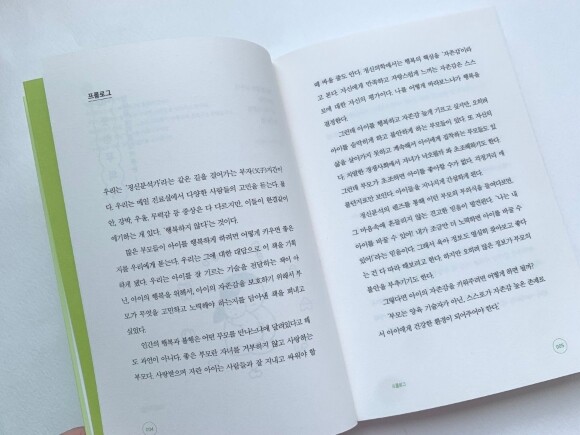 프롤로그
우리는 '정신분석가'라는 같은 길을 걸어가는 부자(父子)지간이
다. 우리는 매일 진료실에서 다양한 사람들의 고민을 듣는다. 불
안, 강박, 우울, 무력감 등 증상은 다 다르지만, 이들이 한결같이
얘기하는 게 있다. '행복하지 않다'는 것이다.
많은 부모들이 아이를 행복하게 하려면 어떻게 키우면 좋은
지를 우리에게 묻는다. 우리는 그에 대한 대답으로 이 책을 기획
하게 됐다. 우리는 아이를 잘 기르는 기술을 전달하는 책이 아
닌, 아이의 행복을 위해서, 아이의 자존감을 보호하기 위해서 부
모가 무엇을 고민하고 노력해야 하는지를 담아낸 책을 펴내고
싶었다.
인간의 행복과 불행은 어떤 부모를 만나느냐에 달려있다고 해
도 과언이 아니다. 좋은 부모란 자녀를 거부하지 않고 사랑하는
부모다. 사랑받으며 자란 아이는 사람들과 잘 지내고 싸워야 할
004
때 싸울 줄도 안다. 정신의학에서는 행복의 핵심을 '자존감'이라
고 본다. 자신에게 만족하고 자랑스럽게 느끼는 자존감은 스스
로에 대한 자신의 평가이다. 나를 어떻게 바라보느냐가 행복을
결정한다.
그런데 아이를 행복하고 자존감 높게 기르고 싶지만, 오히려
아이를 숨막히게 하고 불안하게 하는 부모들이 있다. 또 자신의
삶을 살아가지 못하고 계속해서 아이에게 집착하는 부모들도 있
다. 치열한 경쟁사회에서 자녀가 낙오될까 봐 초조해하기도 한다.
그런데 부모가 초조하면 아이를 놓아줄 수가 없다. 걱정거리 에
몰던지로만 보인다. 아이들을 지나치게 간섭하게 된다.
정신분석의 렌즈를 통해 이런 부모의 무의식을 들여다보면,
그 마음속에 흔들리지 않는 견고한 믿음이 발견된다. '나는 내
아이를 바꿀 수 있어! 내가 조금만 더 노력하면 아이를 바꿀 수
있어!'라는 믿음이다. 그래서 육아 정보도 열심히 찾아보고 좋다
는 건 다 따라 해보려고 한다. 하지만 오히려 많은 정보가 부모의
불안을 부추기기도 한다.
그렇다면 아이의 자존감을 키워주려면 어떻게 하면 될까?
'부모는 양육 기술자가 아닌, 스스로가 자존감 높은 존재로
서 아이에게 건강한 환경이 되어주어야 한다.'
프롤로그
005